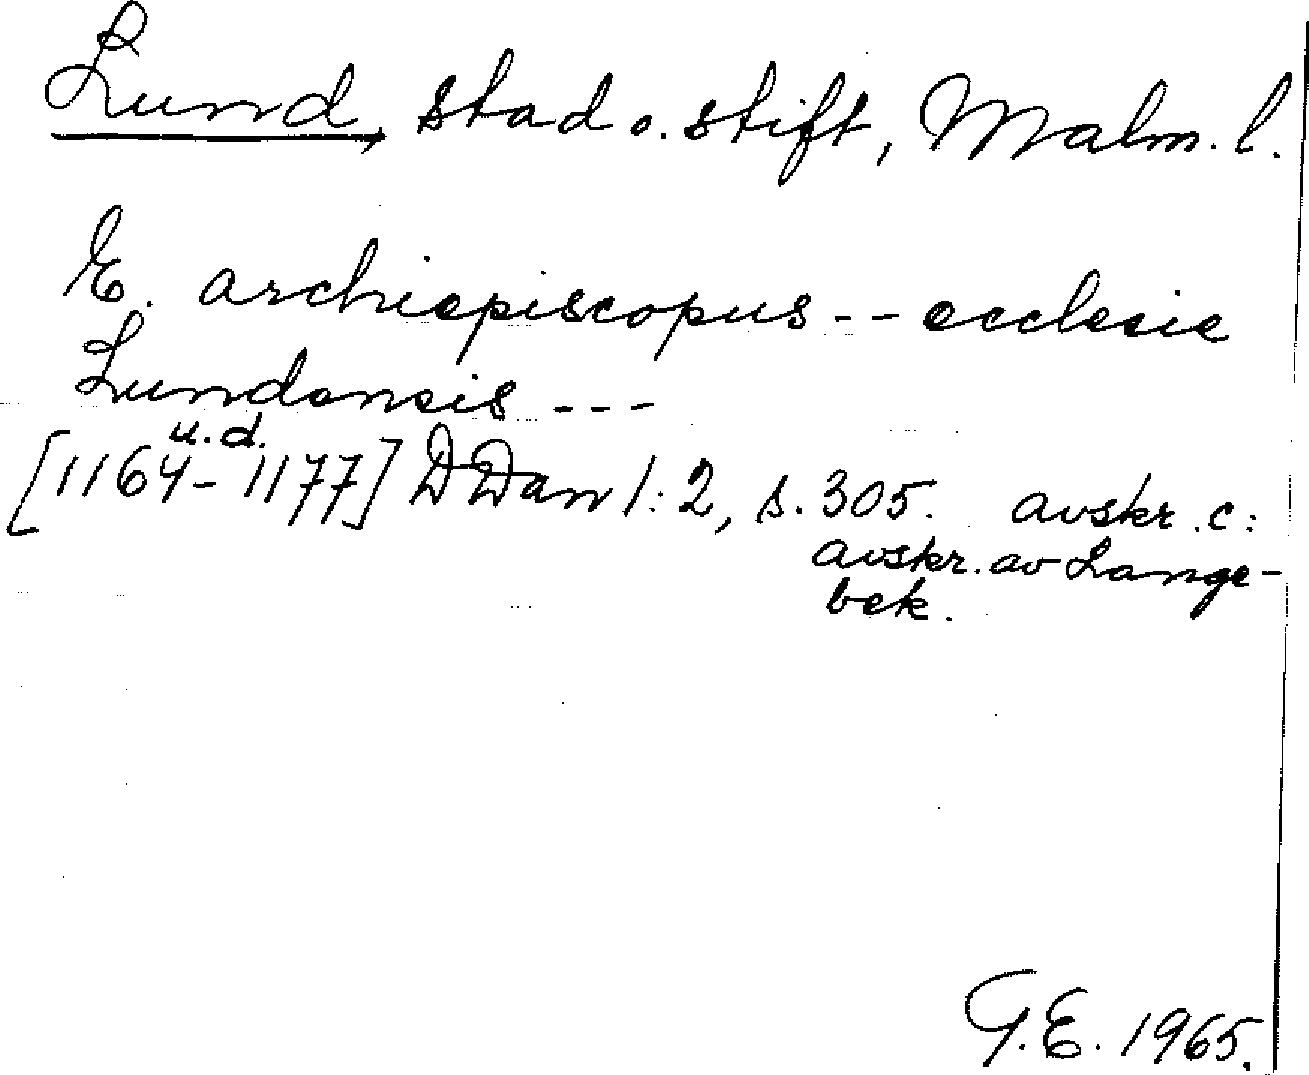 Lund, stad o. stift, Malm. l.
E. archiepiscopus -- ecclesie
Lundensis ---
u. d.
[1164-1177] DDan 1:2, s. 305. avskr. c:
avskr. av Lange-
bek.
G.E. 1965.